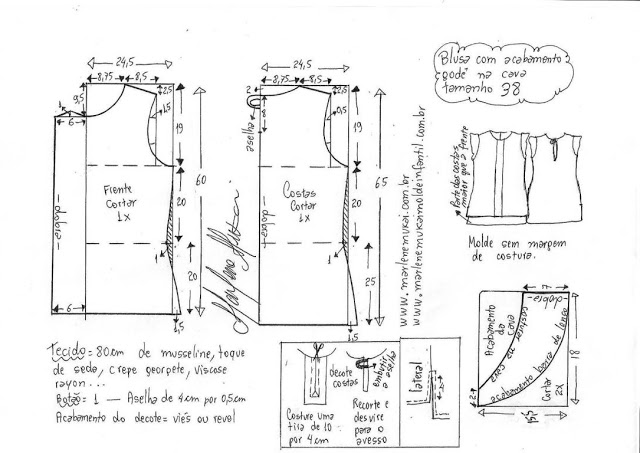 Blusa com acabamento
"godê" na cava
tamanho 38
24,5
8,75
8,5
2,5
9,5
1
6
1,5
19
60
Frente
Cortar
1x
dobra
20
1
20
6
1,5
24,5
8,75
8,5
2
2,5
8
aselha
0,5
19
65
Costas
Cortar
1x
dobra
20
1
25
1,5
www.marlenemukai.com.br
www.marlenemukaimoldeinfantil.com.br
Parte das costas
maior que a frente
Molde sem margem
de costura.
7
dobra
Acabamento
da cava
costurar na cava
acabamento barra de lenço
Cortar
2x
18
2
15
Tecido = 80cm de musseline, toque
de seda, crepe georgete, viscose
rayon...
Botão = 1 — Aselha de 4cm por 0,5cm
Acabamento do decote = viés ou revel
decote
costas
embutir
a aselha
Costure uma
tira de 10
por 4cm
Recorte e
desvire
para o
avesso
lateral